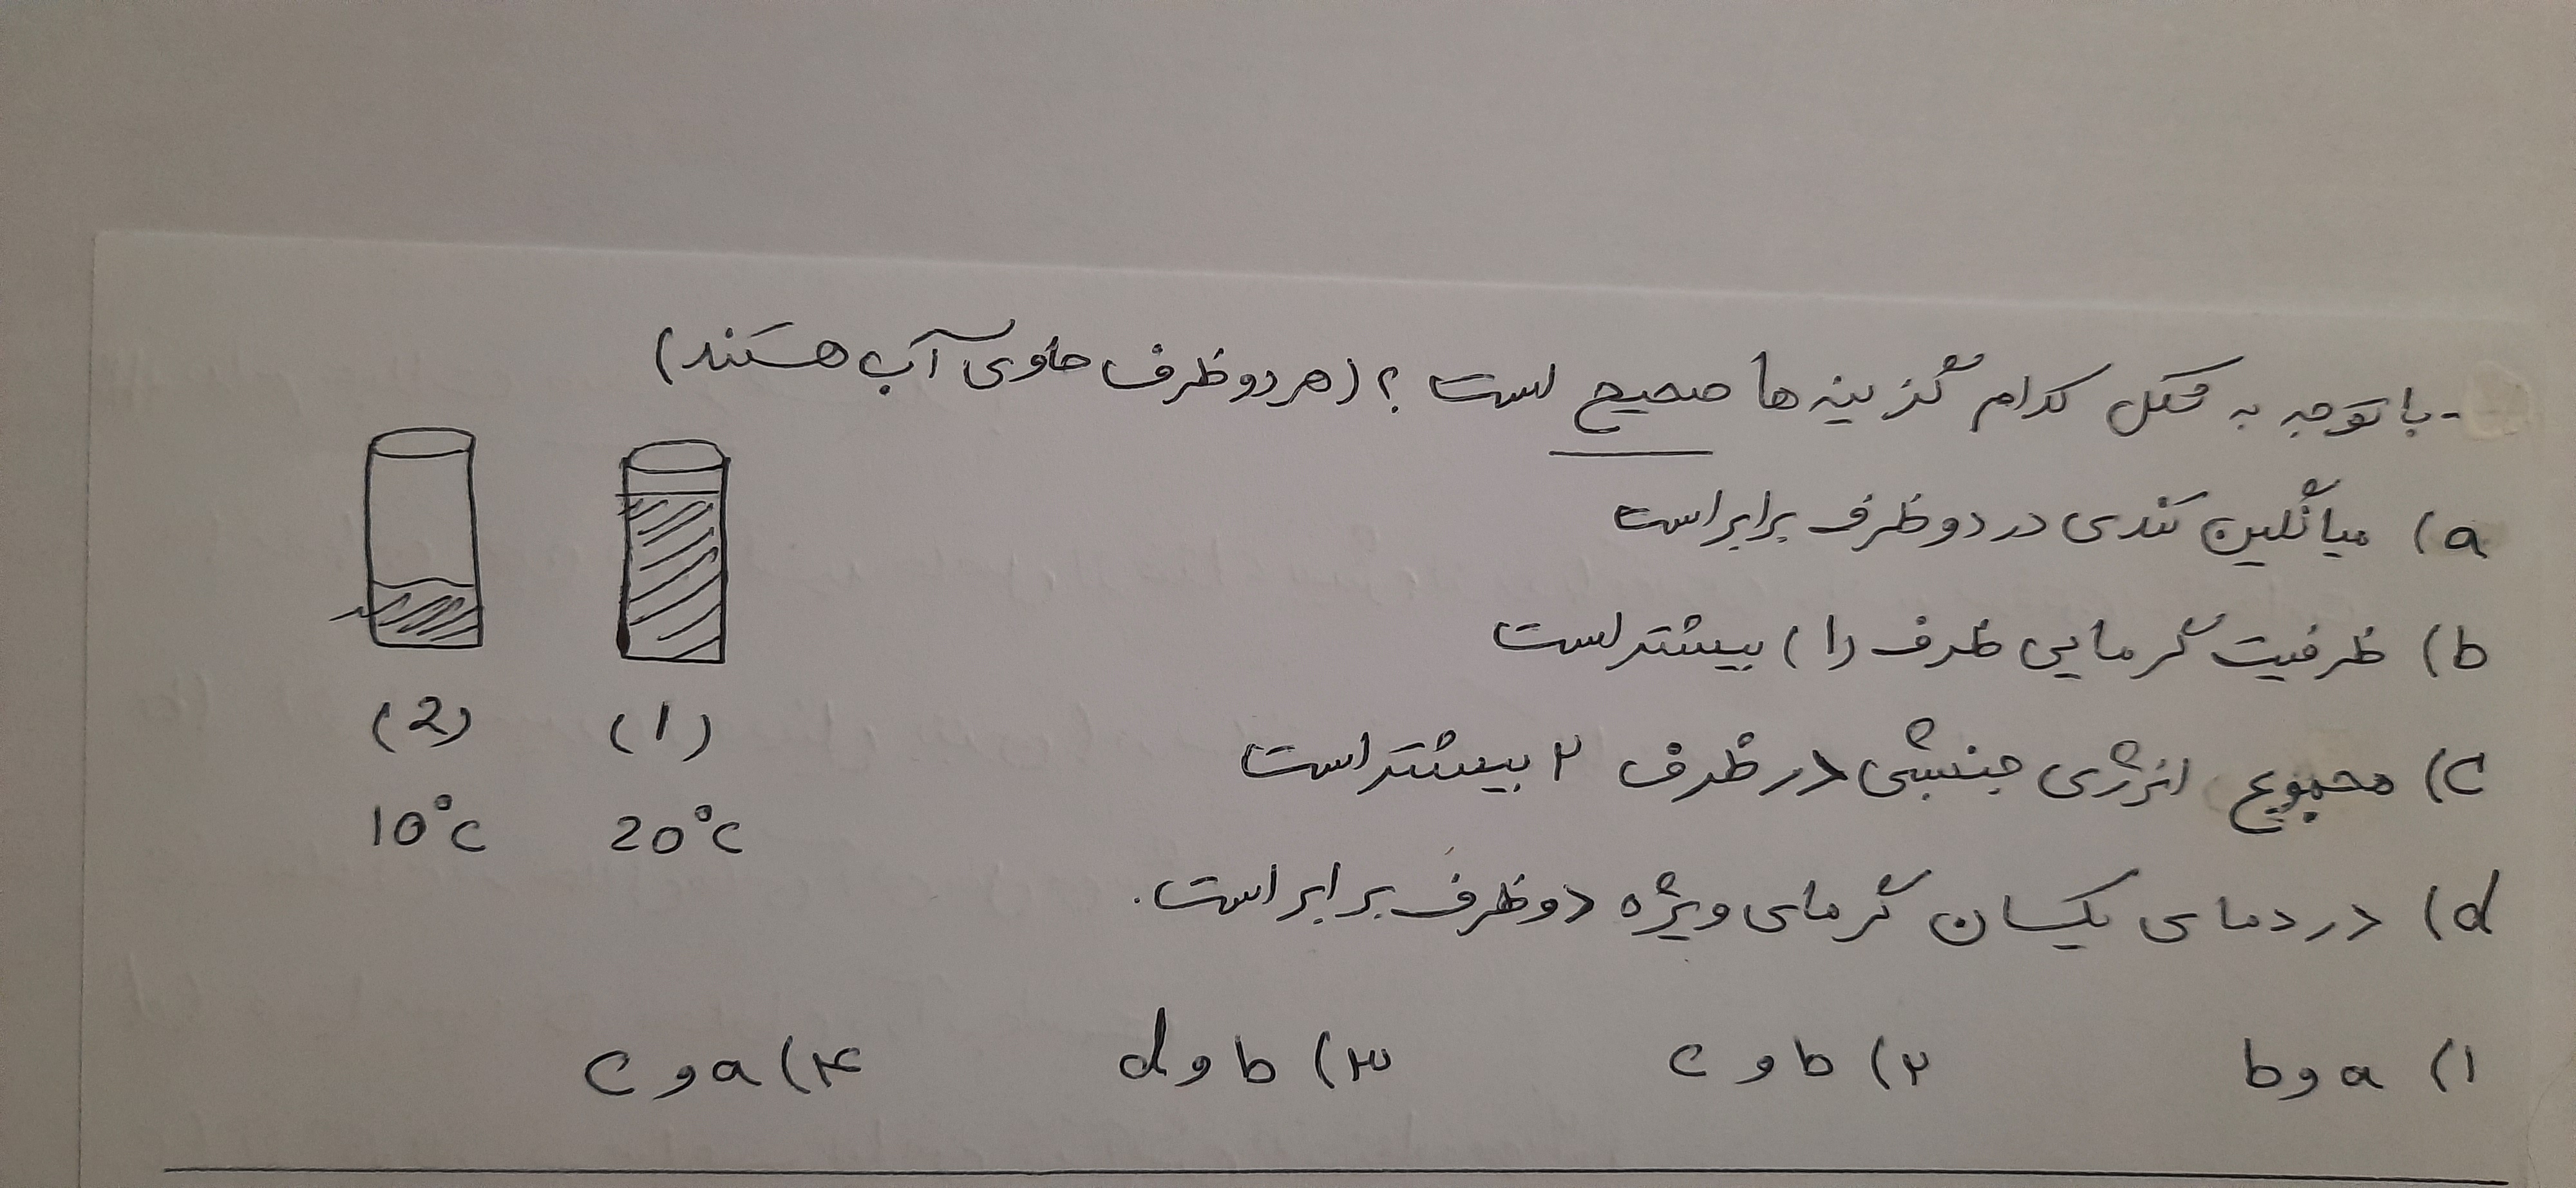 - با توجه به شکل کدام گزینه ها صحیح است ؟ (هر دو ظرف حاوی آب هستند)
a) میانگین تندی در دو ظرف برابر است
b) ظرفیت گرمایی ظرف (۱) بیشتر است
c) مجموع انرژی جنبشی در ظرف ۲ بیشتر است
d) در دمای یکسان گرمای ویژه دو ظرف برابر است.
(2) (1)
10°C 20°C
۱) a و b ۲) b و c ۳) b و d ۴) a و c